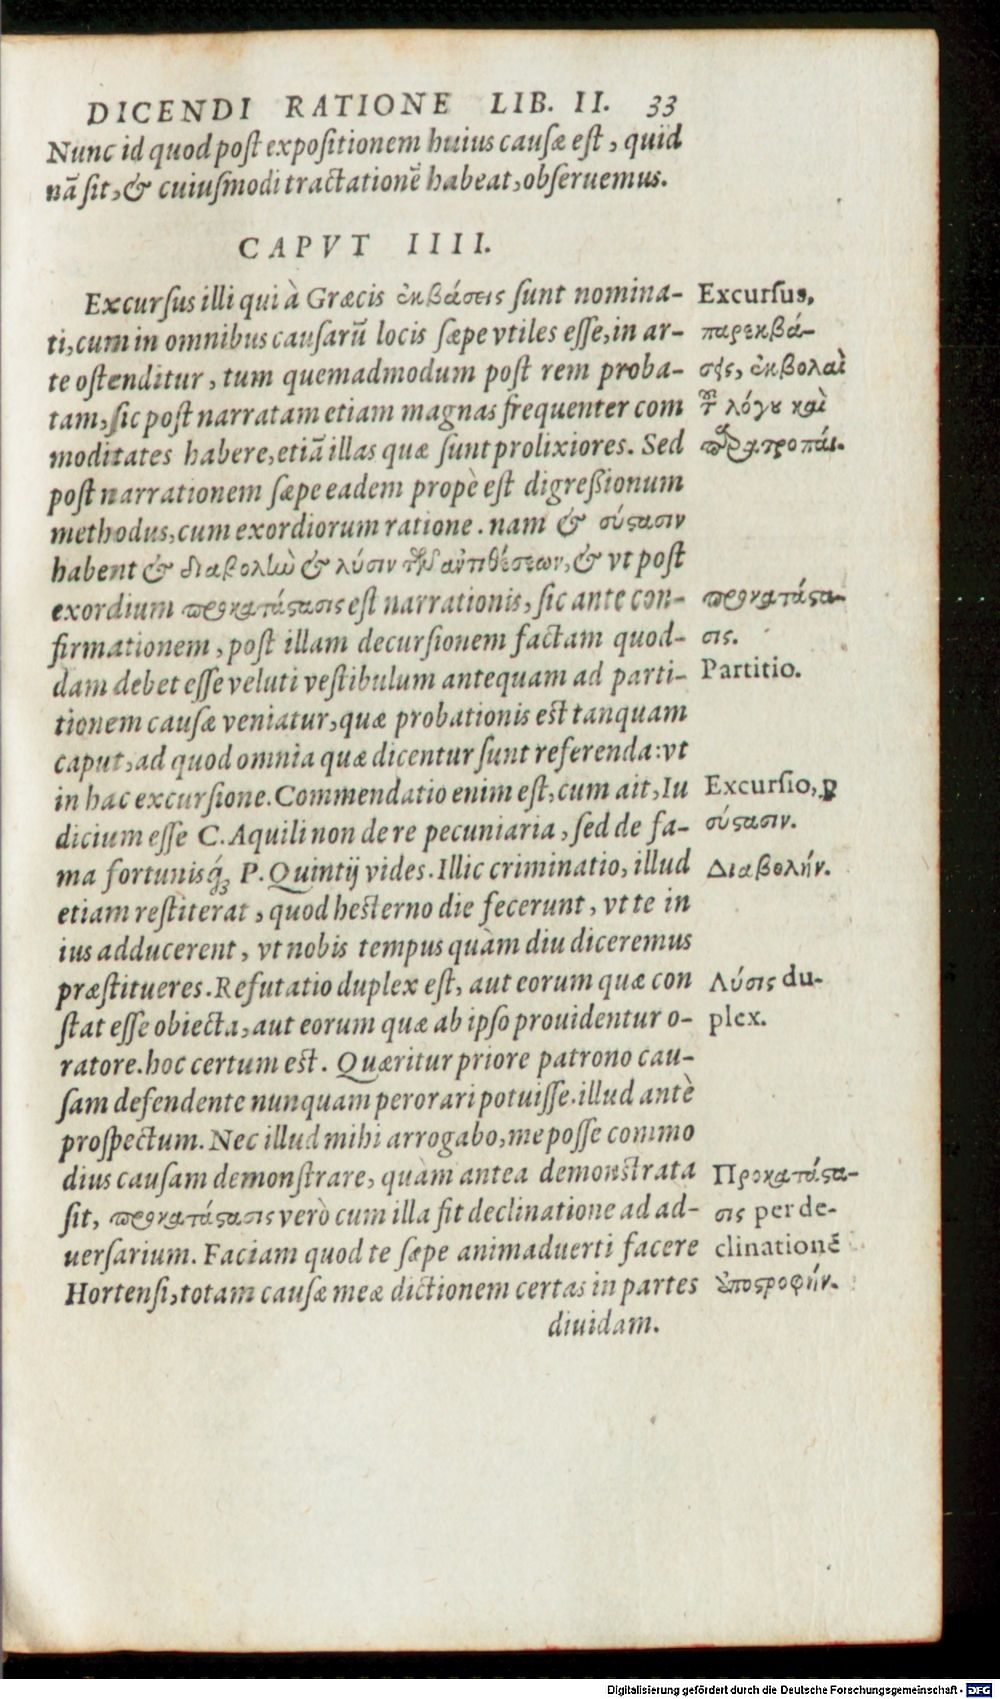 DICENDI RATIONE LIB. II. 33
Nunc id quod post expositionem huius causæ est, quid
nā sit, & cuiusmodi tractationē habeat, obseruemus.
CAPVT IIII.
Excursus illi qui à Græcis ἐκβάσεις sunt nomina-
ti, cum in omnibus causarū locis sæpe vtiles esse, in ar-
te ostenditur, tum quemadmodum post rem proba-
tam, sic post narratam etiam magnas frequenter com
moditates habere, etiā illas quæ sunt prolixiores. Sed
post narrationem sæpe eadem propè est digreßionum
methodus, cum exordiorum ratione. nam & σύςασιν
habent & διαβολὼ & λύσιν τῶν ἀντιθέσεων, & vt post
exordium προκατάςασις est narrationis, sic ante con-
firmationem, post illam decursionem factam quod-
dam debet esse veluti vestibulum antequam ad parti-
tionem causæ veniatur, quæ probationis est tanquam
caput, ad quod omnia quæ dicentur sunt referenda: vt
in hac excursione. Commendatio enim est, cum ait, Iu
dicium esse C. Aquili non de re pecuniaria, sed de fa-
ma fortunisq́; P. Quintij vides. Illic criminatio, illud
etiam restiterat, quod hesterno die fecerunt, vt te in
ius adducerent, vt nobis tempus quàm diu diceremus
præstitueres. Refutatio duplex est, aut eorum quæ con
stat esse obiecta, aut eorum quæ ab ipso prouidentur o-
ratore. hoc certum est. Quæritur priore patrono cau-
sam defendente nunquam perorari potuisse. illud antè
prospectum. Nec illud mihi arrogabo, me posse commo
dius causam demonstrare, quàm antea demonstrata
sit, προκατάςασις verò cum illa fit declinatione ad ad-
uersarium. Faciam quod te sæpe animaduerti facere
Hortensi, totam causæ meæ dictionem certas in partes
diuidam.
Excursus,
παρεκβά-
σῆς, ἐκβολαὶ
τ͂ λόγȣ καὶ
παρατροπάι.
προκατάςα-
σις.
Partitio.
Excursio, ꝑ
σύςασιν.
Διαβολήν.
Λύσις du-
plex.
Προκατάςα-
σις per de-
clinationē
ὑποςροφήν.
Digitalisierung gefördert durch die Deutsche Forschungsgemeinschaft - DFG